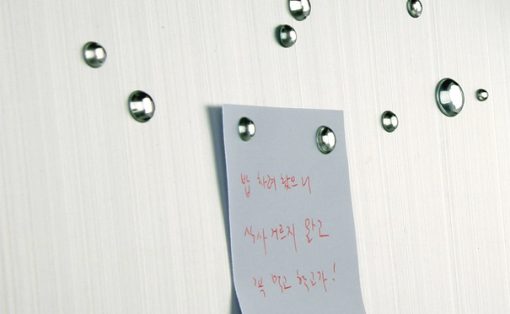 밥 차려 놨으니
식사 거르지 말고
꼭 먹고 학교가!